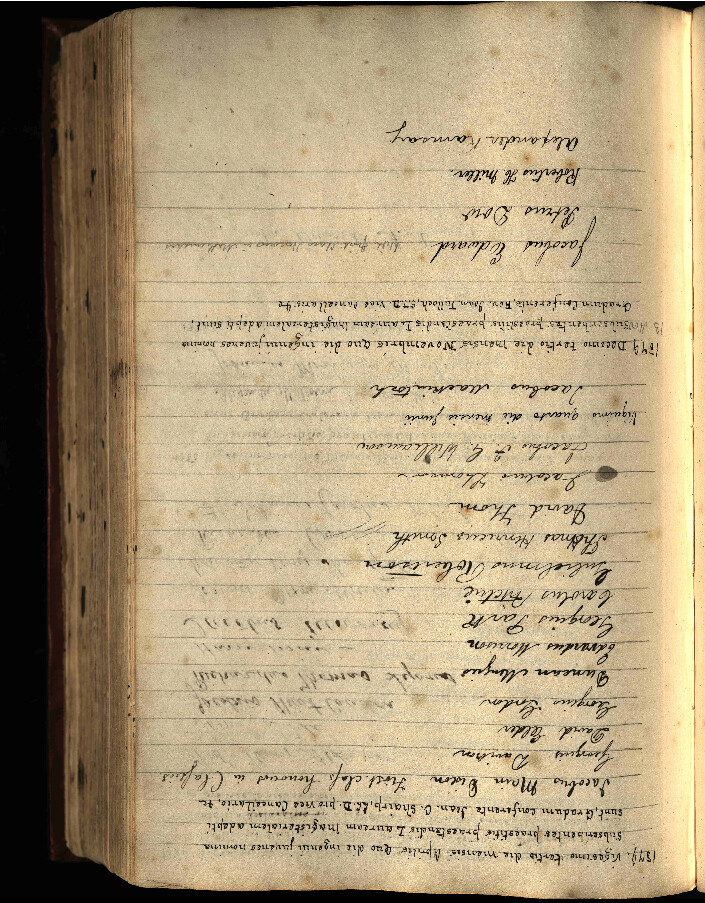 1879. Vigesimo tertio die mensis Aprilis quo die ingenui juvenes nomina
subscribentes praestitis praestandis Lauream Magisterialem adepti
sunt, Gradum conferente Joan. C. Shairp, LL.D. pro vice Cancellario, &c.
Jacobus Main Dixon First class honours in Classics
Georgius Davidson
David Elder
Georgius Gordon
Duncan Menzies
Edvardus Morrison
Georgius Park
Carolus Ritchie
Gulielmus Robertson
Thomas Henricus Smith
David Thom
Jacobus Thomson
Jacobus F. G. Williamson
Vigesimo quarto die mensis Junii
Jacobus Mackintosh
1879 Decimo tertio die mensis Novembris quo die ingenui juvenes nomina
subscribentes, praestitis praestandis Lauream Magisterialem adepti sunt,
Gradum Conferente, Rev. Joan. Tulloch, S.T.D. vice Cancellario &c
Jacobus Edward
Petrus Dow
Robertus H. Miller.
Alexander Ramsay